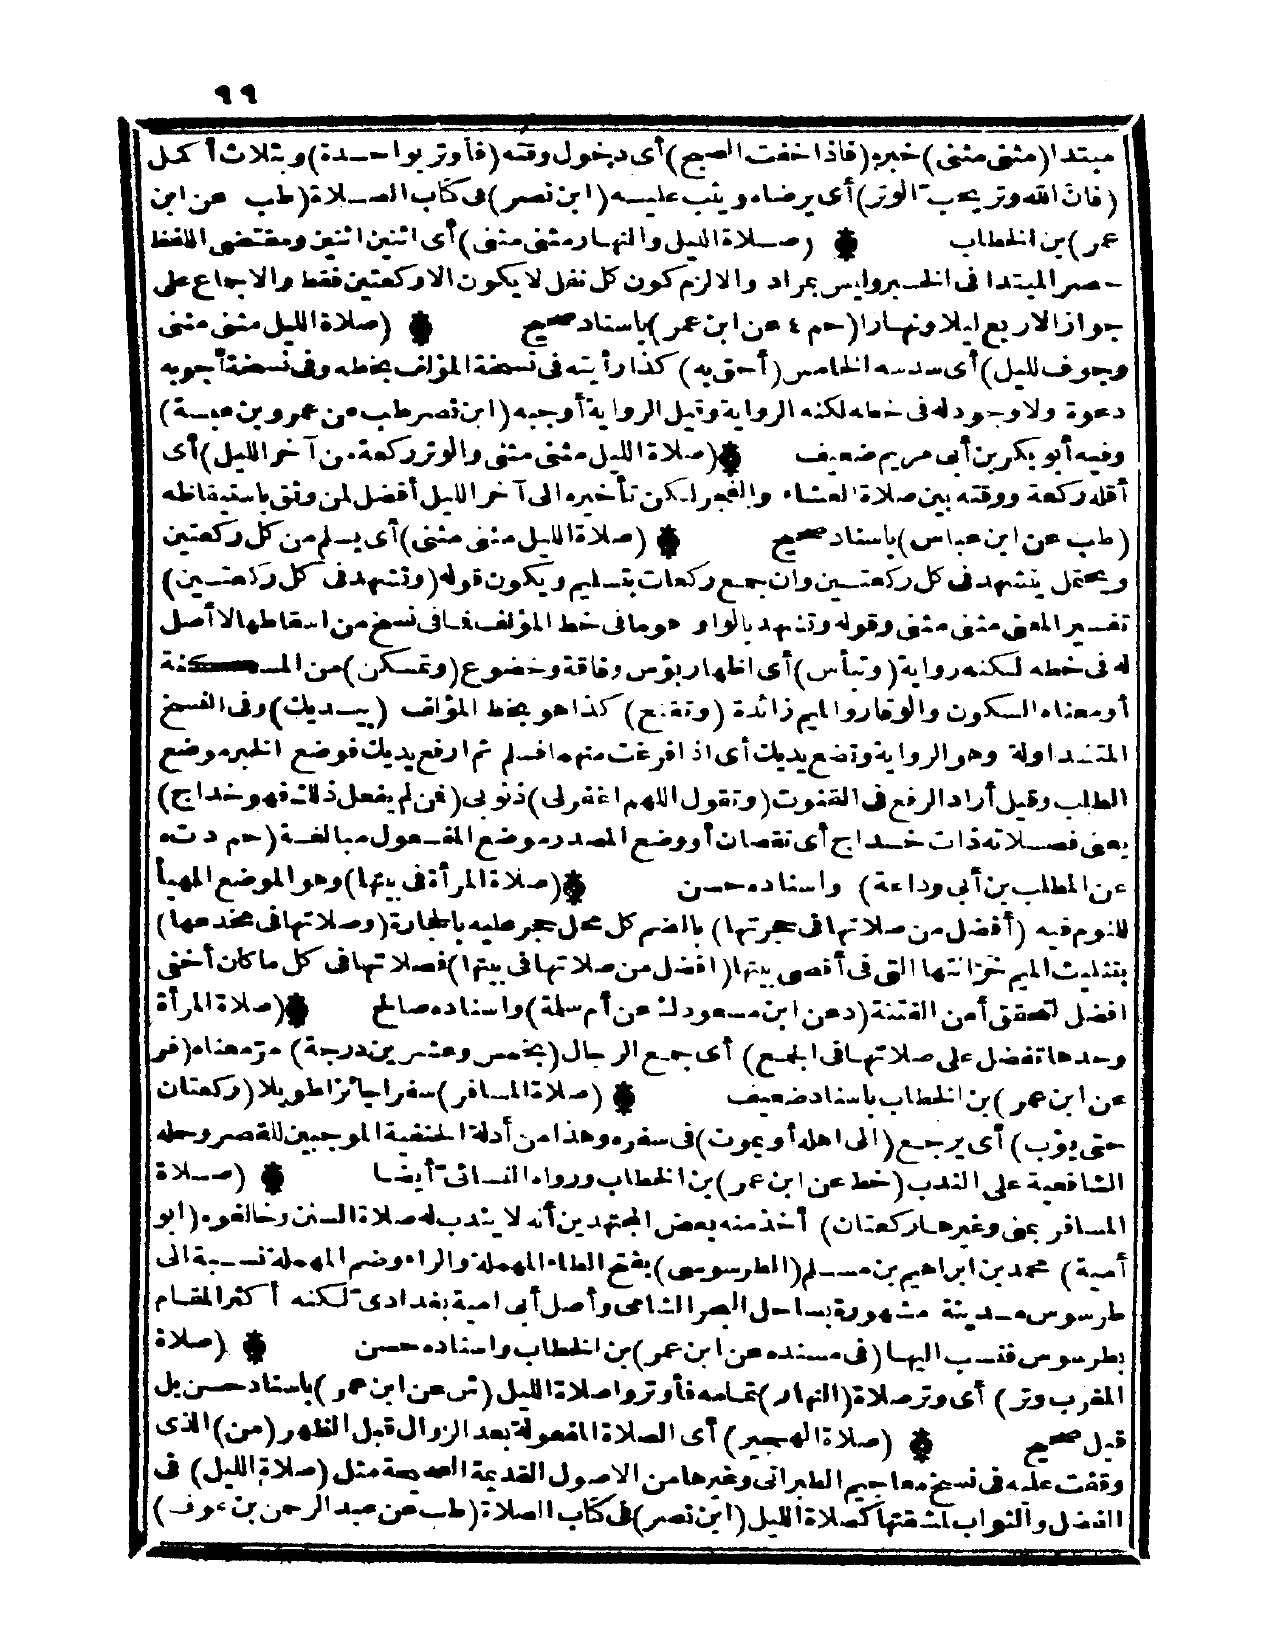 ٩٩
مبتدا (مثنى مثنى) خبره (فاذا خفت الصبح) أى دخول وقته (فأوتر بواحدة) وبثلاث أكمل
(فان الله وتر يحب الوتر) أى يرضاه ويثيب عليه (ابن نصر) فى كتاب الصلاة (طب عن ابن
عمر) بن الخطاب (صلاة الليل والنهار مثنى مثنى) أى اثنين اثنين ومقتضى اللفظ
حصر المبتدا فى الخبر وليس بمراد والا لزم كون كل نفل لا يكون الا ركعتين فقط والاجماع على
جواز الاربع ليلا ونهارا (حم ٤ عن ابن عمر) باسناد صحيح (صلاة الليل مثنى مثنى
وجوف لليل) أى سدسه الخامس (أحق به) كذا رأيته فى نسخة المؤلف بخطه وفى نسخة أجوبه
دعوة ولا وجود له فى خطه لكنه الرواية وقيل الرواية أوجبه (ابن نصر طب عن عمرو بن عبسة)
وفيه أبو بكر بن أبى مريم ضعيف (صلاة الليل مثنى مثنى والوتر ركعة من آخر الليل) أى
أقله ركعة ووقته بين صلاة العشاء والفجر لكن تأخيره الى آخر الليل أفضل لمن وثق باستيقاظه
(طب عن ابن عباس) باسناد صحيح (صلاة الليل مثنى مثنى) أى يسلم من كل ركعتين
ويحتمل يتشهد فى كل ركعتين وان جمع ركعات بتسليم ويكون قوله (وتشهد فى كل ركعتين)
تفسير المعنى مثنى مثنى وقوله وتشهد بالواو هو ما فى خط المؤلف فما فى نسخ من اسقاطها لا أصل
له فى خطه لكنه رواية (وتبأس) أى اظهار بؤس وفاقة وخضوع (وتمسكن) من المسكنة
أو معناه السكون والوقار والميم زائدة (وتقنع) كذا هو بخط المؤلف (بيديك) وفى النسخ
المتداولة وهو الرواية وتضع يديك أى اذا فرغت منهما فسلم ثم ارفع يديك فوضع الخبر موضع
الطلب وقيل أراد الرفع فى القنوت (وتقول اللهم اغفر لى) ذنوبى (فمن لم يفعل ذلك فهو خداج)
يعنى فصلاته ذات خداج أى نقصان أو وضع المصدر موضع المفعول مبالغة (حم د ت ه
عن المطلب بن أبى وداعة) واسناده حسن (صلاة المرأة فى بيتها) وهو الموضع المهيأ
للنوم فيه (أفضل من صلاتها فى حجرتها) بالضم كل محل حجر عليه بالحجارة (وصلاتها فى مخدعها)
بتثليث الميم خزانتها التى فى أقصى بيتها (افضل من صلاتها فى بيتها) فصلاتها فى كل ما كان أخفى
افضل لتحقق أمن الفتنة (د عن ابن مسعود ك عن أم سلمة) واسناده صالح (صلاة المرأة
وحدها تفضل على صلاتها فى الجمع) أى جمع الرجال (بخمس وعشرين درجة) مر معناه (فر
عن ابن عمر) بن الخطاب باسناد ضعيف (صلاة المسافر) سفرا جائزا طويلا (ركعتان
حتى يؤب) أى يرجع (الى اهله أو يموت) فى سفره وهذا من أدلة الحنفية الموجبين للقصر وحمله
الشافعية على الندب (خط عن ابن عمر) بن الخطاب ورواه النسائى أيضا (صلاة
المسافر بمنى وغيرها ركعتان) أخذ منه بعض المجتهدين أنه لا يندب له صلاة السنن وخالفوه (ابو
أمية) محمد بن ابراهيم بن مسلم (الطرسوسى) بفتح الطاء المهملة والراء وضم المهملة نسبة الى
طرسوس مدينة مشهورة بساحل البحر الشامى وأصل أبى امية بغدادى لكنه أكثر المقام
بطرسوس فنسب اليها (فى مسنده عن ابن عمر) بن الخطاب واسناده حسن (صلاة
المغرب وتر) أى وتر صلاة (النهار) تمامه فأوتروا صلاة الليل (ش عن ابن عمر) باسناد حسن بل
قيل صحيح (صلاة الهجير) أى الصلاة المفعولة بعد الزوال قبل الظهر (من) الذى
وقفت عليه فى نسخ معاجيم الطبرانى وغيرها من الاصول القديمة الصحيحة مثل (صلاة الليل) فى
الفضل والثواب لمشقتها كصلاة الليل (ابن نصر) فى كتاب الصلاة (طب عن عبد الرحمن بن عوف)